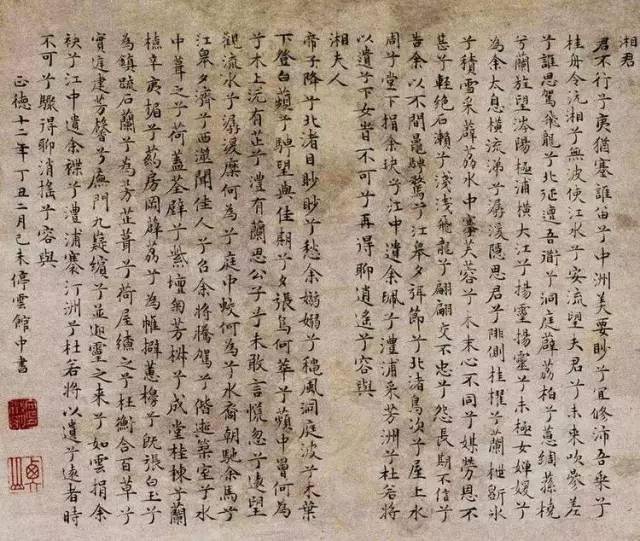 湘君
君不行兮夷猶蹇誰留兮中洲美要眇兮宜修沛吾乘兮
桂舟令沅湘兮無波使江水兮安流望夫君兮未來吹參差
兮誰思駕飛龍兮北征邅吾道兮洞庭薜荔柏兮蕙綢蓀橈
兮蘭旌望涔陽極浦橫大江兮揚靈揚靈兮未極女嬋媛兮
為余太息橫流涕兮潺湲隱思君兮陫側桂櫂兮蘭枻斲氷
兮積雪采薜荔水中搴芙蓉兮木末心不同兮媒勞恩不
甚兮輕絕石瀨兮淺淺飛龍兮翩翩交不忠兮怨長期不信兮
告余以不閒鼂騁騖兮江皋夕弭節兮北渚鳥次兮屋上水
周兮堂下捐余玦兮江中遺余珮兮澧浦采芳洲兮杜若將
以遺兮下女旹不可兮再得聊逍遙兮容與
湘夫人
帝子降兮北渚目眇眇兮愁余嫋嫋兮穐風洞庭波兮木葉
下登白薠兮騁望與佳期兮夕張鳥何萃兮蘋中罾何為
兮木上沅有芷兮澧有蘭思公子兮未敢言慌忽兮遠望
觀流水兮潺湲麋何為兮庭中蛟何為兮水裔朝馳余馬兮
江皋夕濟兮西澨聞佳人兮召余將騰駕兮偕逝築室兮水
中葺之兮荷蓋荃壁兮紫壇匊芳椒兮成堂桂棟兮蘭
橑辛夷楣兮葯房罔薜荔兮為帷擗蕙櫋兮既張白玉兮
為鎮疏石蘭兮為芳芷葺兮荷屋繚之兮杜衡合百草兮
實庭建芳馨兮廡門九疑繽兮並迎靈之來兮如雲捐余
袂兮江中遺余褋兮澧浦搴汀洲兮杜若將以遺兮遠者時
不可兮驟得聊消搖兮容與
正德十二年丁丑二月己未停雲館中書